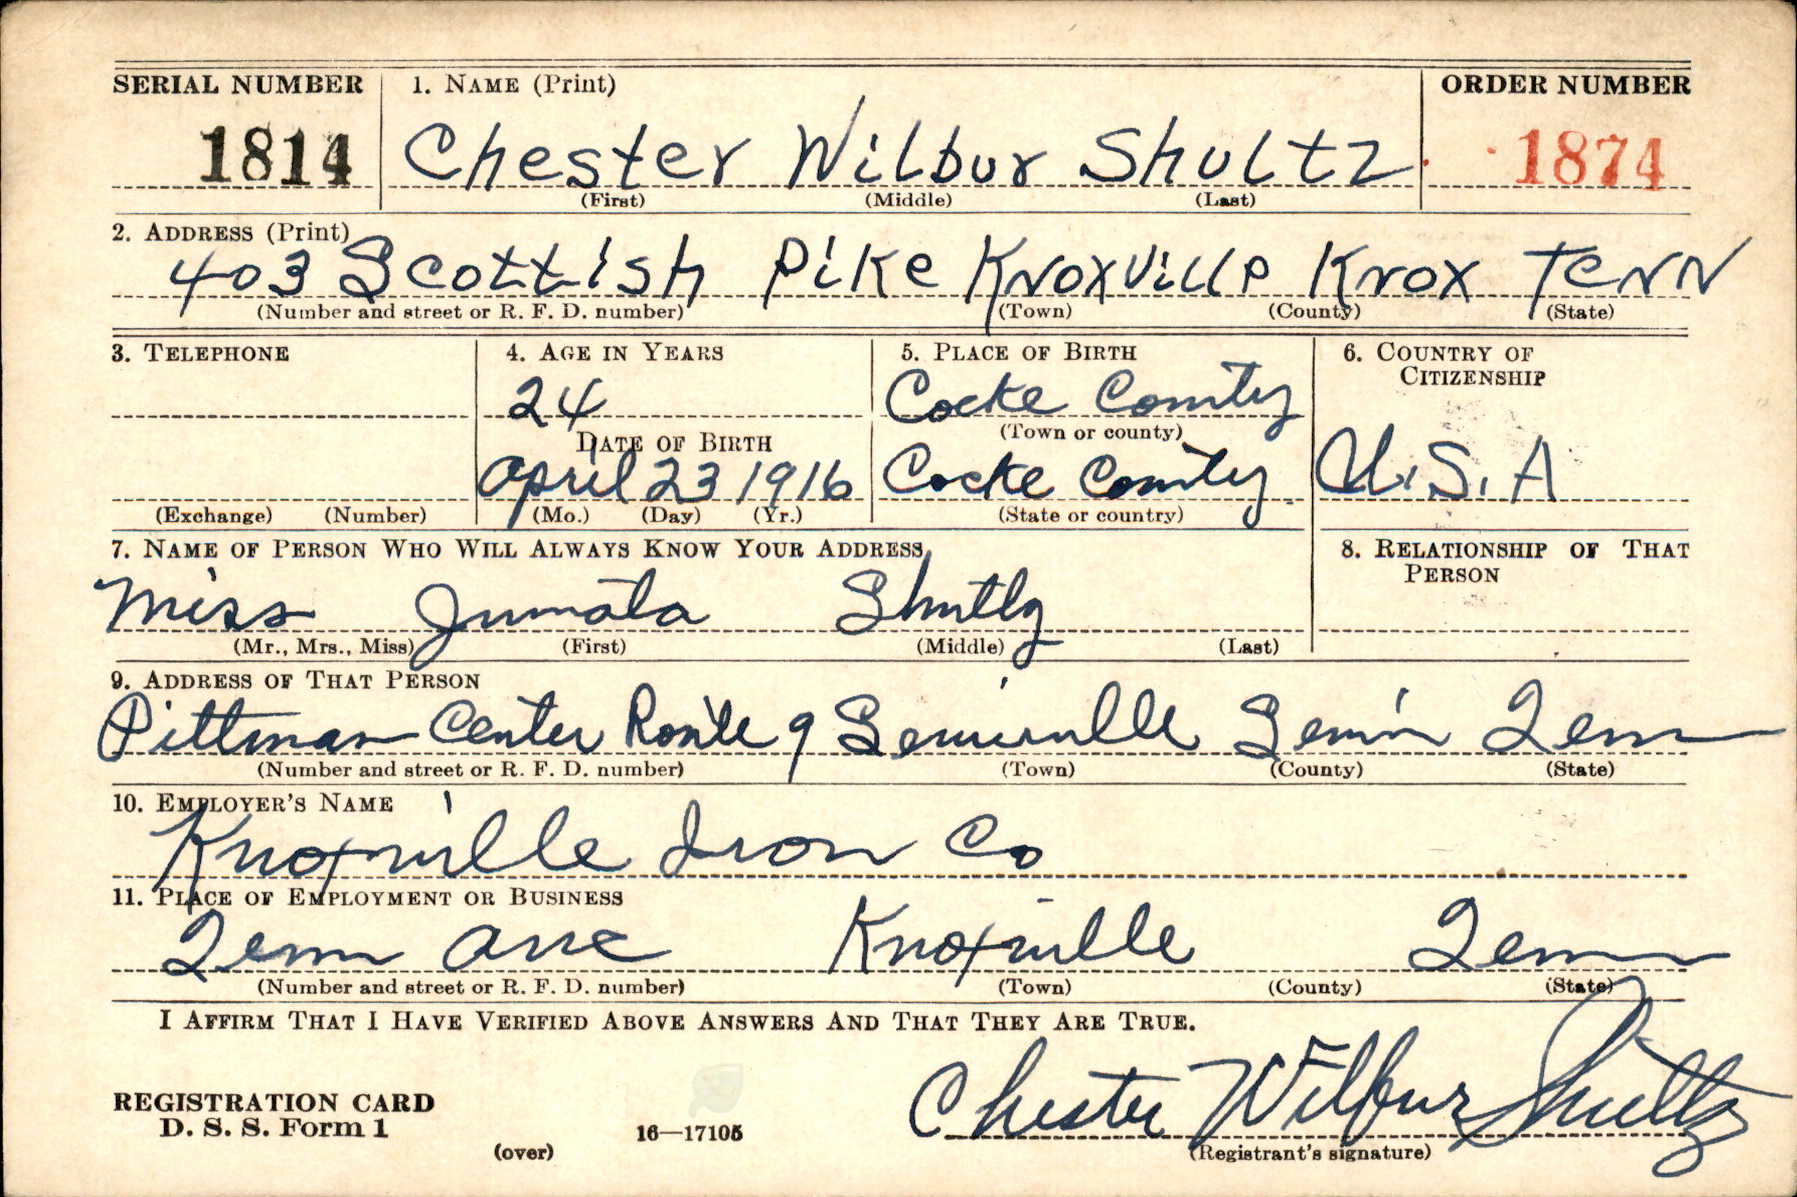 SERIAL NUMBER 1. NAME (Print) ORDER NUMBER
1814 Chester Wilbur Shultz 1874
(First) (Middle) (Last)
2. ADDRESS (Print)
403 Scottish Pike Knoxville Knox Tenn
(Number and street or R. F. D. number) (Town) (County) (State)
3. TELEPHONE 4. AGE IN YEARS 5. PLACE OF BIRTH 6. COUNTRY OF
CITIZENSHIP
24 Cocke County
DATE OF BIRTH (Town or county)
April 23 1916 Cocke County U.S.A
(Exchange) (Number) (Mo.) (Day) (Yr.) (State or country)
7. NAME OF PERSON WHO WILL ALWAYS KNOW YOUR ADDRESS 8. RELATIONSHIP OF THAT
PERSON
Miss Shultz
(Mr., Mrs., Miss) (First) (Middle) (Last)
9. ADDRESS OF THAT PERSON
Pittman Center Route 9 Sevierville Sevier Tenn
(Number and street or R. F. D. number) (Town) (County) (State)
10. EMPLOYER'S NAME
Knoxville Iron Co
11. PLACE OF EMPLOYMENT OR BUSINESS
Tenn Ave Knoxville Tenn
(Number and street or R. F. D. number) (Town) (County) (State)
I AFFIRM THAT I HAVE VERIFIED ABOVE ANSWERS AND THAT THEY ARE TRUE.
Chester Wilbur Shultz
REGISTRATION CARD
D. S. S. Form 1
(over) 16—17105 (Registrant's signature)